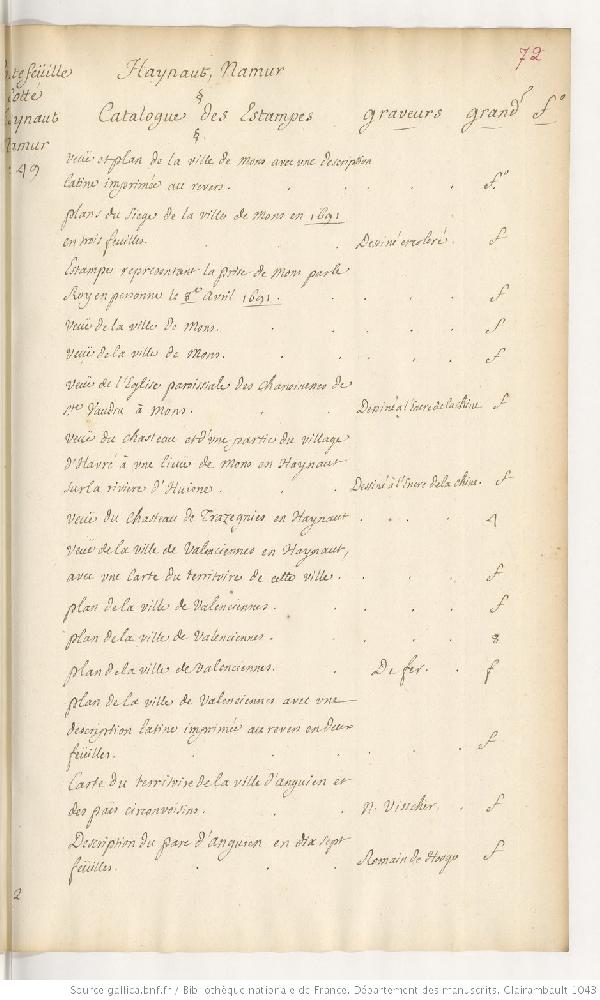 72
Haynaut, Namur
§
Catalogue des Estampes graveurs grandr fo
§
Veüe et plan de la ville de Mons avec une description
latine imprimée au revers. fo
plans du siege de la ville de Mons en 1691
en trois feuilles. Desiné et coloré. f
Estampe representant la prise de Mons par le
Roy en personne le 8e Avril 1691. f
Veüe de la ville de Mons. f
Veüe de la ville de Mons. f
Veüe de l'Eglise parroissiale des chanoinesses de
ste Vaudru à Mons. Dessiné à l'Encre de la chine f
Veüe du chasteau et d'une partie du village
d'Havré à une lieue de Mons en Haynaut
sur la riviere d'Huisne. Dessiné à l'Encre de la chine. f
Veüe du Chasteau de Trazegnies en Haynaut 4
Veüe de la ville de Valenciennes en Haynaut,
avec une Carte du territoire de cette ville. f
plan de la ville de Valenciennes. f
plan de la ville de Valenciennes. 8
plan de la ville de Valenciennes. De fer. f
plan de la ville de Valenciennes avec une
description latine imprimée au revers en deux
feüilles. f
Carte du territoire de la ville d'anguien et
des païs circonvoisins. N. Visscher. f
Description du parc d'Anguien en dix sept
feuilles. Romain de Hooge f
tefëuille
Cotté
aynaut
Namur
49
2
Source gallica.bnf.fr / Bibliothèque nationale de France. Département des manuscrits. Clairambault 1043